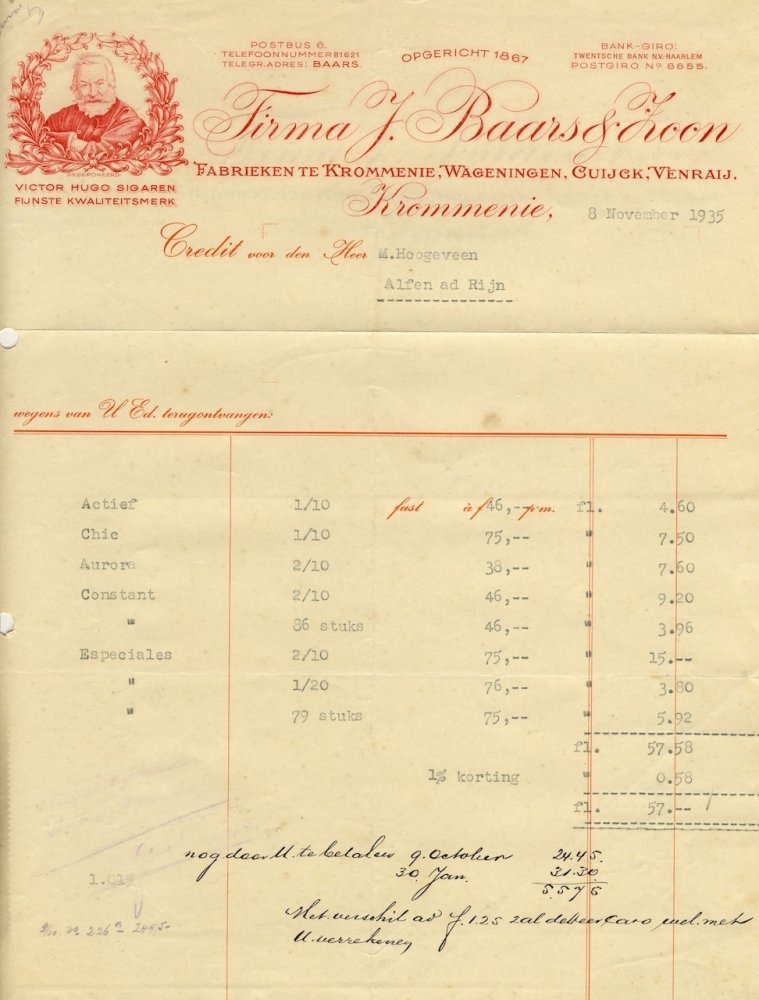 POSTBUS 6.
TELEFOONNUMMER 81621
TELEGR. ADRES: BAARS.
OPGERICHT 1867
BANK-GIRO:
TWENTSCHE BANK N.V. HAARLEM
POSTGIRO No 8855.
Firma J. Baars & Zoon
FABRIEKEN TE KROMMENIE, WAGENINGEN, CUIJCK, VENRAIJ.
GEDEPONEERD
VICTOR HUGO SIGAREN
FIJNSTE KWALITEITSMERK
Krommenie, 8 November 1935
Credit voor den Heer M.Hoogeveen
Alfen ad Rijn
wegens van U Ed. terugontvangen:
Actief 1/10 fust à f 46,-- p.m. fl. 4.60
Chic 1/10 75,-- " 7.50
Aurora 2/10 38,-- " 7.60
Constant 2/10 46,-- " 9.20
" 86 stuks 46,-- " 3.96
Especiales 2/10 75,-- " 15.--
" 1/20 76,-- " 3.80
" 79 stuks 75,-- " 5.92
fl. 57.58
1% korting " 0.58
fl. 57.--
nog door U. te betalen 9. October 24.45.
30. Jan. 31.30.
55.75
1.015
Het verschil ad f. 1.25 zal de heer Caro wel met
U. verrekenen